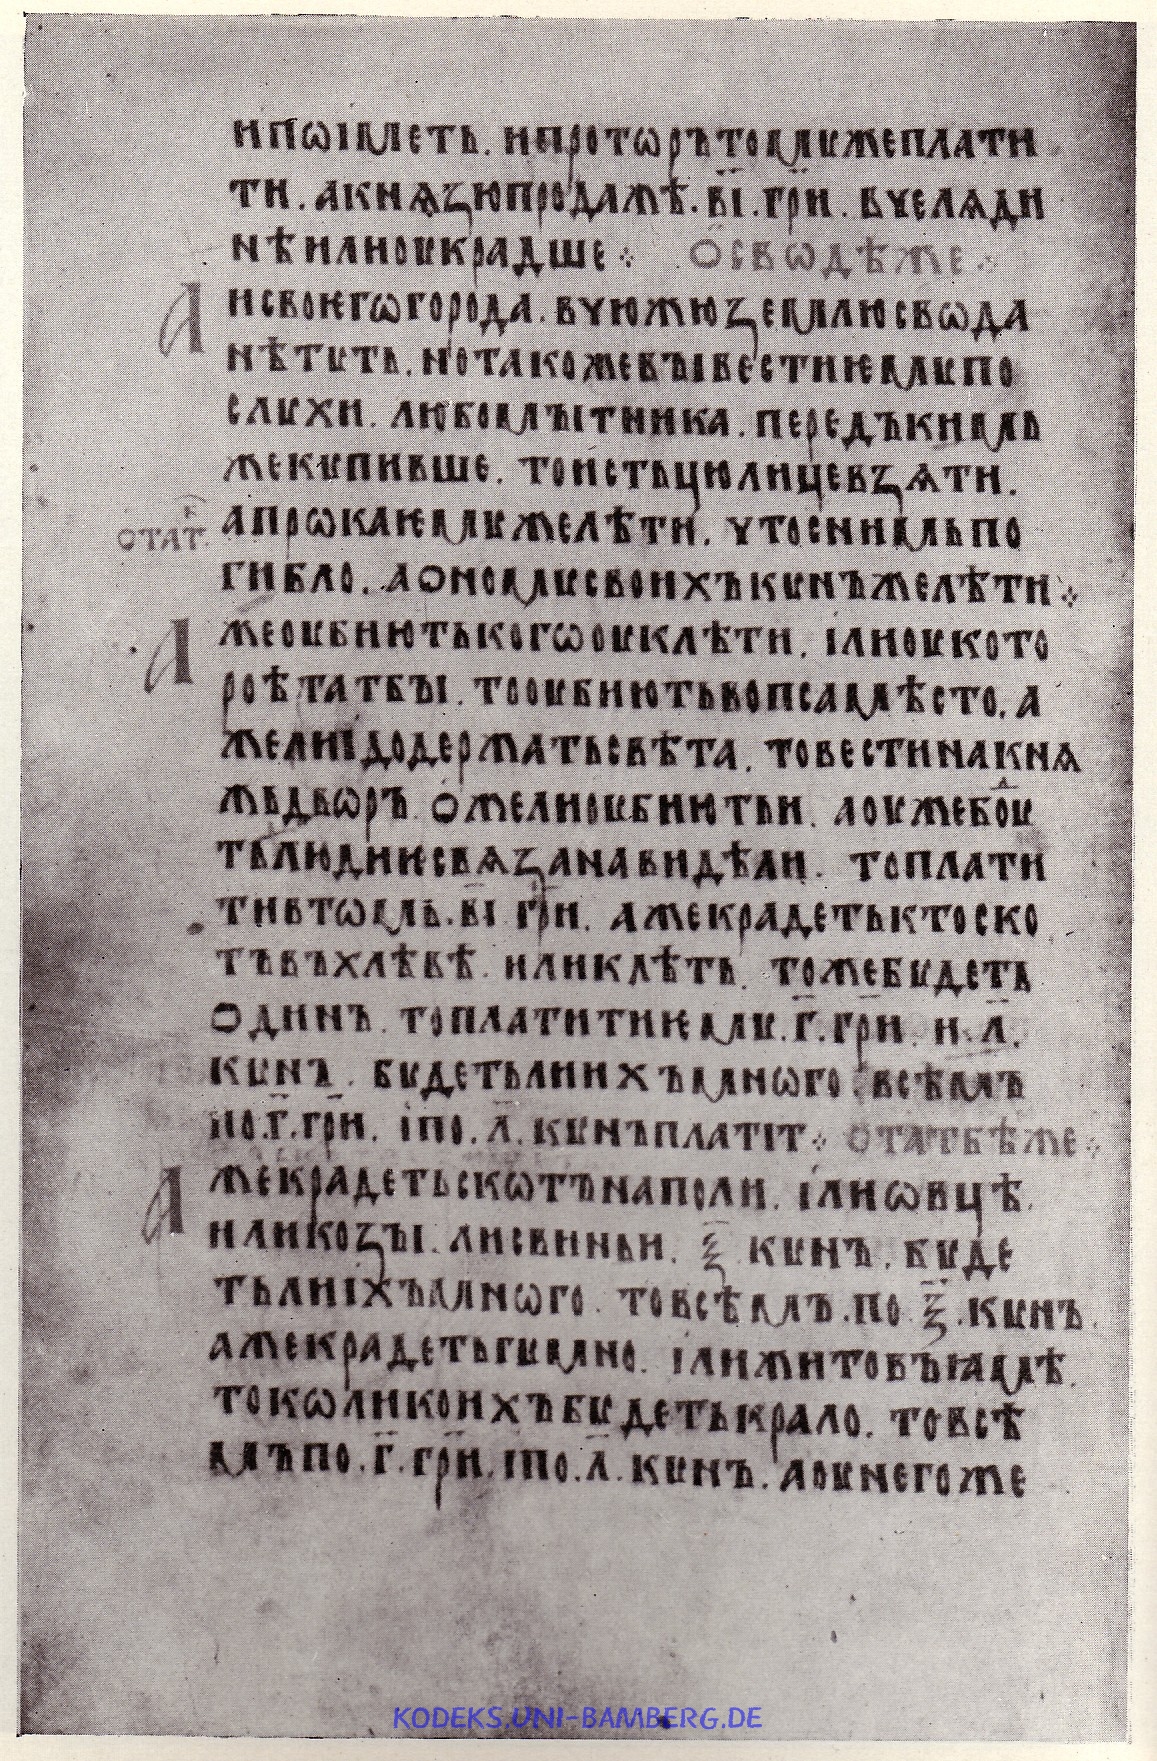 ипѡімлеть. ипротѡрътомꙋжеплати
ти. акнѧзюпродажѣ. в҃і. гр҃н. вчелѧди
нѣилиоукрадше⁘ Ѻсвѡдѣже⁘
Аисвоѥгѡгорода. вчюжюземлюсвѡда
нѣтуть. нотакожевъıвестиѥмупо
слухи. любомъıтника. передъкимь
жекупивше. тоистьцюлицевзѧти.
апрѡкаѥмужелѣти. чтоснимьпо
ѻтат҃.
гибло. аѻномусвоихъкунъжелѣти⁘
Ажеоубиютькогѡоуклѣти. ілиоукото
роѣтатбъı. тооубиютьвопсамѣсто. а
желиідодержатьсвѣта. товестинакнѧ
жьдвѡръ. ѻжелиоубиютьи. аоужебоу
тьлюдииесвѧзанавидѣли. топлати
тивтѡмь. в҃і гр҃н. ажекрадетьктоско
тъвъхлѣвѣ. иликлѣть. тожебудеть
ѻдинъ. топлатитиѥму. г҃. гр҃н. и. л҃.
кунъ. будетьлиихъмнѡго. всѣмъ
по. г҃. гр҃н. іпо. л҃. кунъплатіт⁘ ѻтатбѣже⁘
Ажекрадетьскѡтънаполи. ілиѡвцѣ.
иликозъı. лисвиньи. ѯ҃ кунъ. буде
тьлиіхъмнѡго. товсѣмъ. по ѯ҃. кунъ.
ажекрадетьгумно. ілижитовъıамѣ.
токѡликоихъбудетькрало. товсѣ
мъпо. г҃. гр҃н. іпо. л҃. кунъ. аоунегоже
KODEKS.UNI-BAMBERG.DE